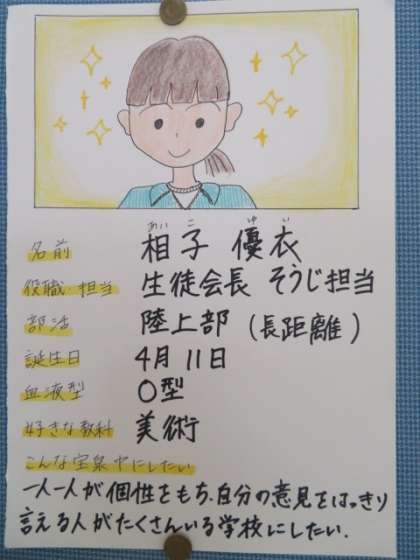 あいこ ゆい
名前 相子 優衣
役職・担当 生徒会長 そうじ担当
部活 陸上部 (長距離)
誕生日 4月 11日
血液型 O型
好きな教科 美術
こんな宝泉中にしたい
一人一人が個性をもち、自分の意見をはっきり
言える人がたくさんいる学校にしたい。